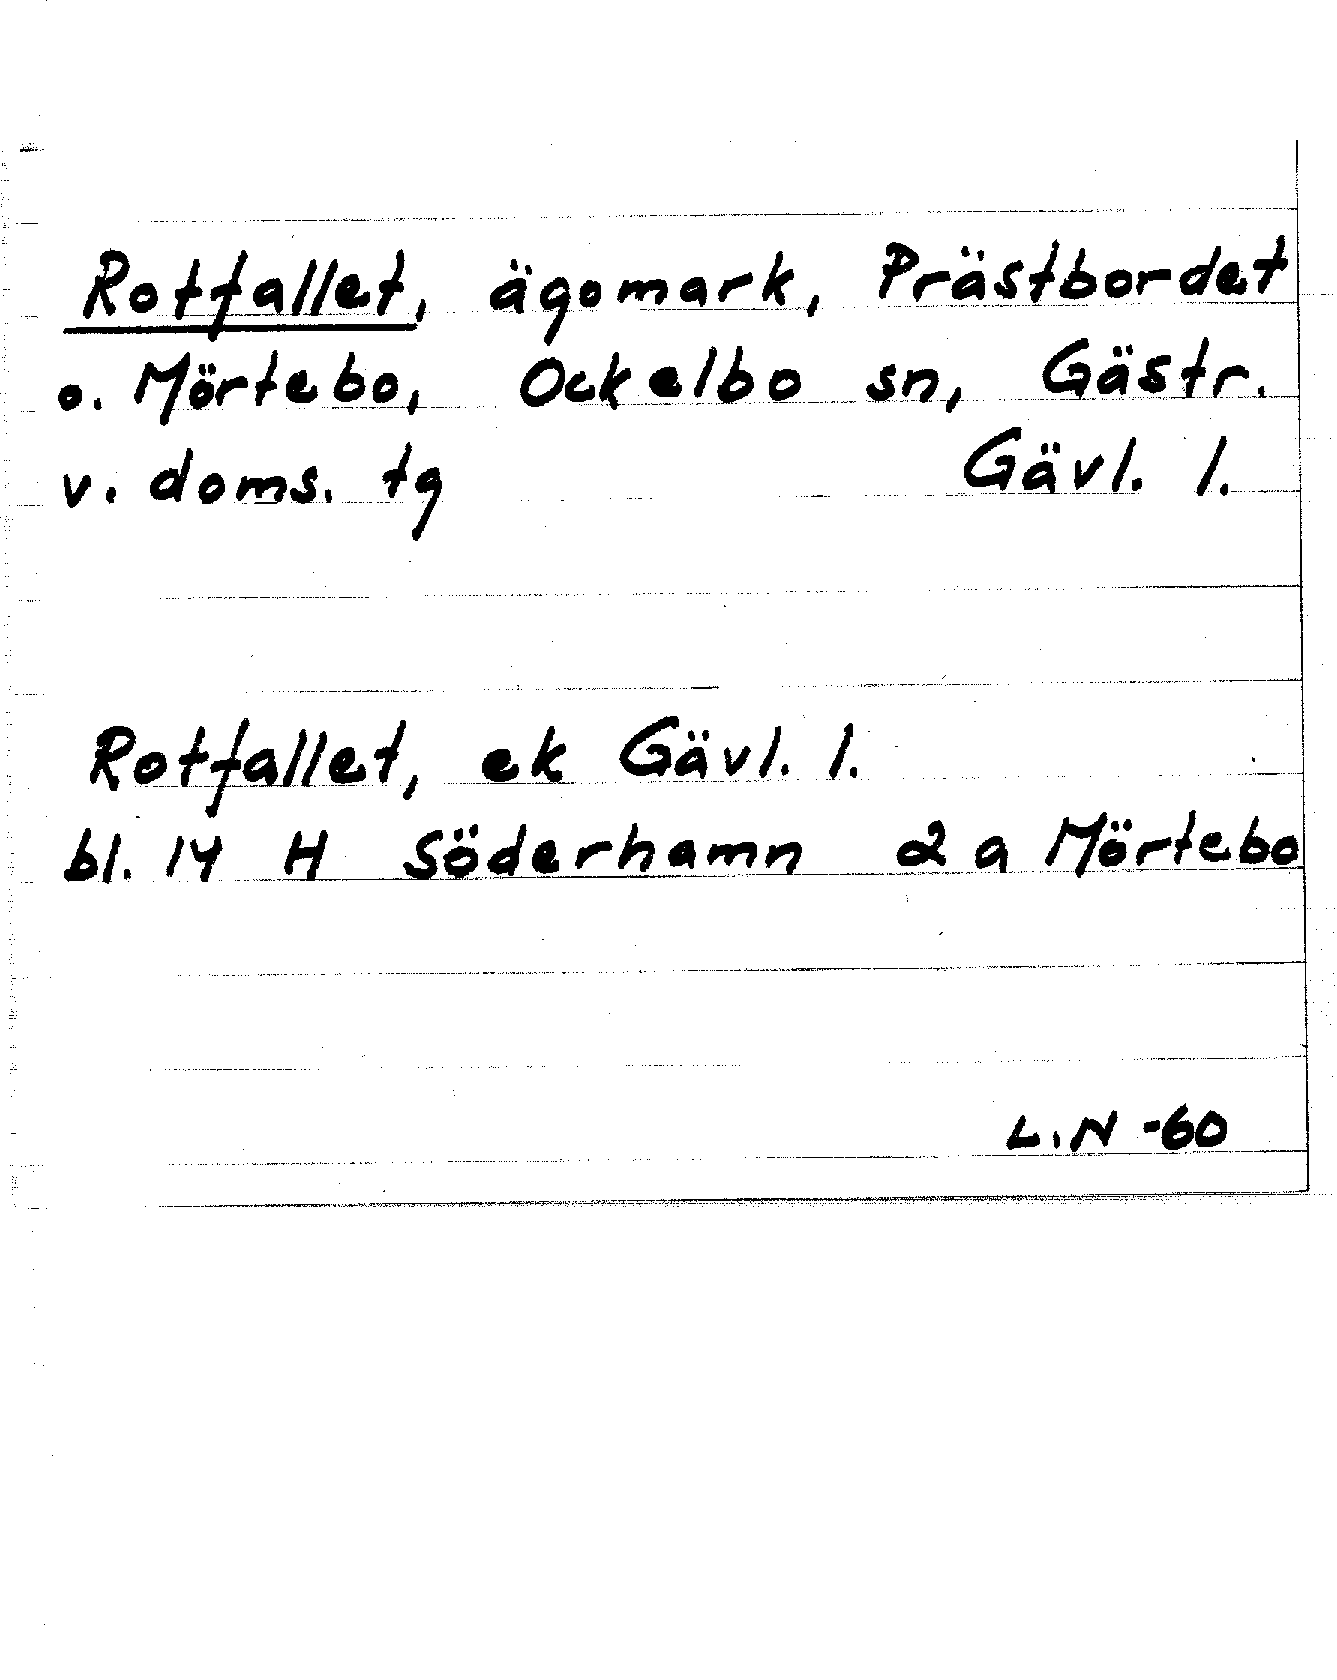 Rotfallet, ägomark, Prästbordet
o. Mörtebo, Ockelbo sn, Gästr.
v. doms. tg Gävl. l.
Rotfallet, ek Gävl. l.
bl. 14 H Söderhamn 2 a Mörtebo
L.N -60